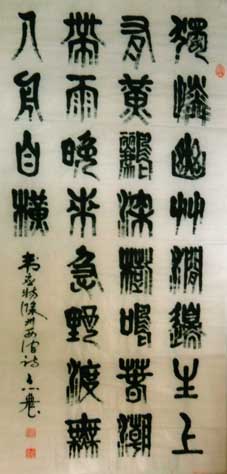 獨憐幽艸澗邊生上
有黃鸝深樹鳴春潮
帶雨晚來急野渡無
人舟自橫
韦应物滁州西涧诗